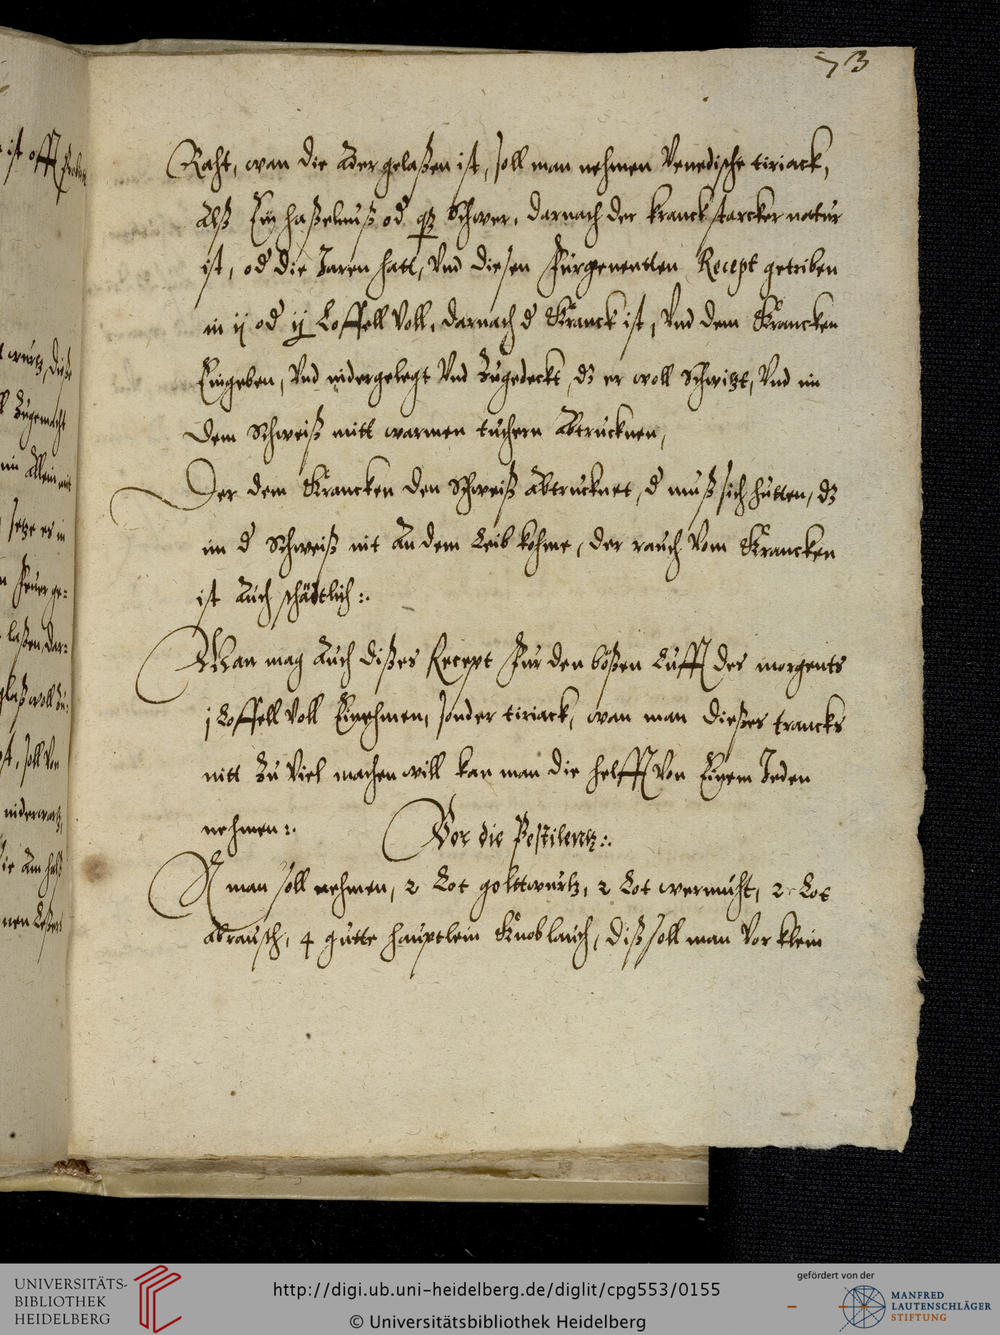 73
Raht, wan die Ader gelaßen ist, soll man nehmen Venedische tiriack,
Alß Ein haßelnuß od qß Schwer, darnach der kranck starcker natur
ist, od die Jaren hatt, Vnd diesen Fürgenentten Recept getriben
in ij od iij Loffell Voll, darnach d Kranck ist, Vnd dem Krancken
Eingeben, Vnd nidergelegt Vnd Zugedeckt, dz er woll Schwitzt, Vnd im
dem Schweiß mitt warmen tuchern Abtrucknen,
Der dem Krancken den Schweiß Abtrucknet, d muß sich hutten, dz
im d Schweiß nit An dem Leib kohme, der rauch Vom Krancken
ist Auch schädtlich :.
Man mag Auch dißes Recept Fur den bößen Lufft des morgents
j Loffell Voll Einehmen, sonder tiriack, wan man dießes trancks
nitt Zu Viel machen will kan man die helfft Von Einem Jeden
nehmen :. Vor die Pestilentz :.
man soll nehmen, 2 Lot golttwurtz, 2 Lot wermuht, 2 Lot
abrausch, 4 gutte hauptlein Knoblauch, diß soll man Vor klein
ist offt
wurtz, die
Zugemacht
im Allein mit
setze es in
Feuer ge=
laßen, dar=
glaß woll Zu=
soll Von
niderwartz,
die Am halß
UNIVERSITÄTS-
BIBLIOTHEK
HEIDELBERG
http://digi.ub.uni-heidelberg.de/diglit/cpg553/0155
© Universitätsbibliothek Heidelberg
gefördert von der
MANFRED
LAUTENSCHLÄGER
STIFTUNG